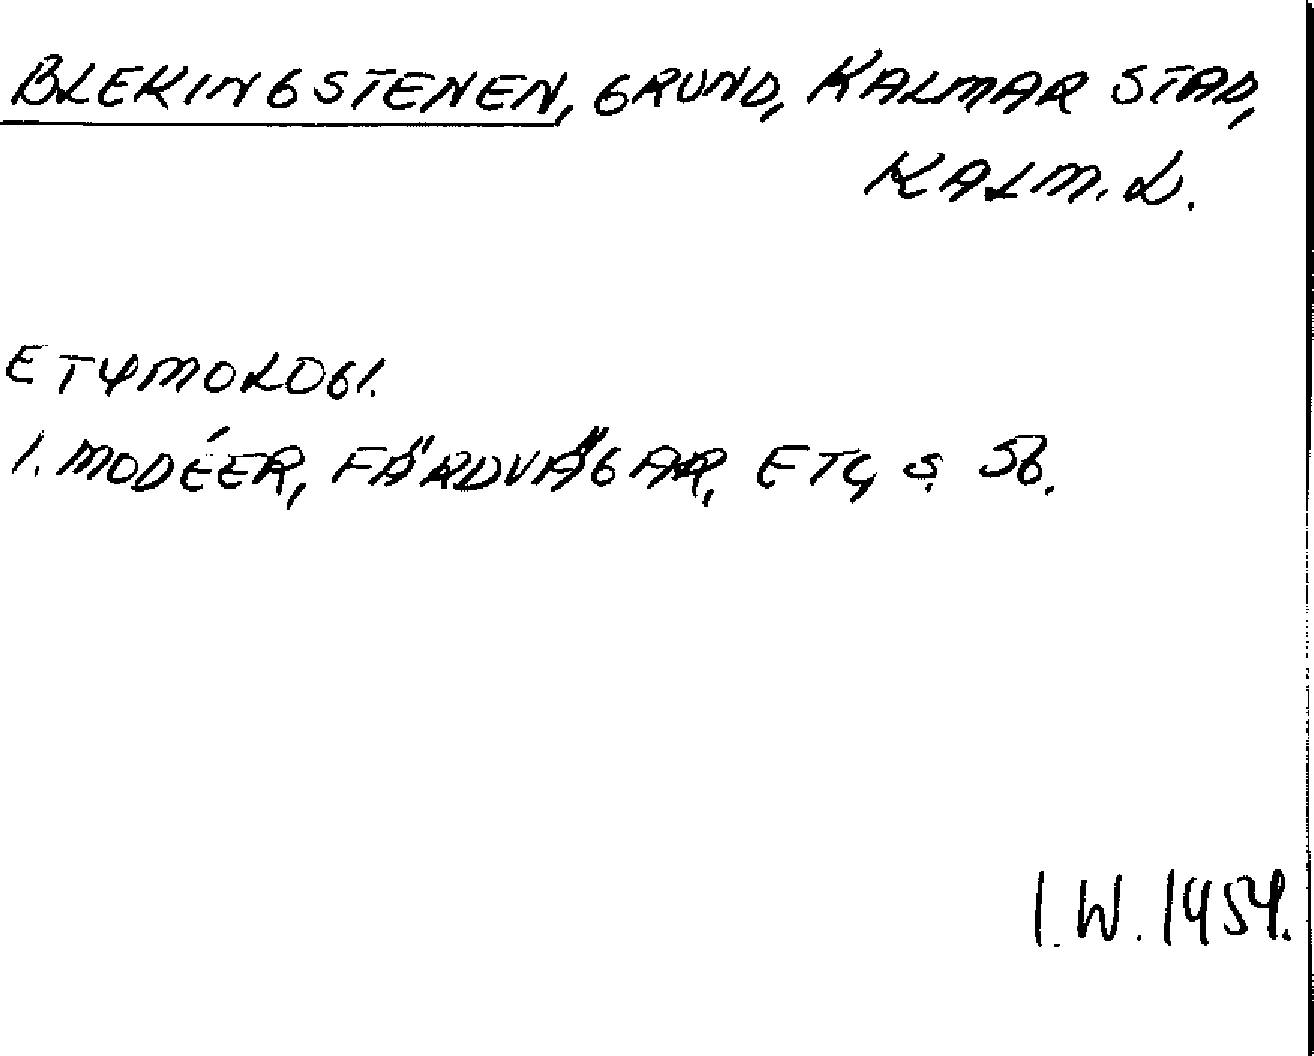 BLEKINGSTENEN, GRUND, KALMAR STAD,
KALM. L.
ETYMOLOGI.
I. MODÉER, FÄRDVÄGAR, ETC, S. 56.
I. W. 1954.